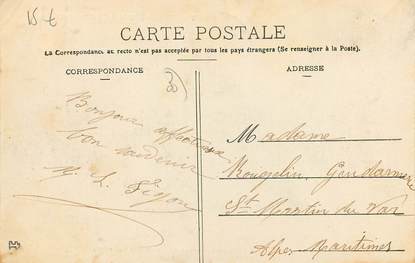 15 €
CARTE POSTALE
La Correspondance au recto n'est pas acceptée par tous les pays étrangers (Se renseigner à la Poste).
CORRESPONDANCE
ADRESSE
Bonjour affectueux
bon souvenir
Madame
Rougelin, Gendarmerie
St Martin du Var
Alpes Maritimes